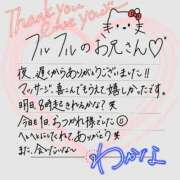 Thank you
Love you
フルフルのお兄さん♡
夜、遅くからありがとうございました!!
マッサージ、喜んでもらえて嬉しかったです。
明日、8時起きれるかな？笑
今日も1日おつかれ様でした☺
へとへとにしてくれて、ありがとう笑
また、会いたいな〜
わかな